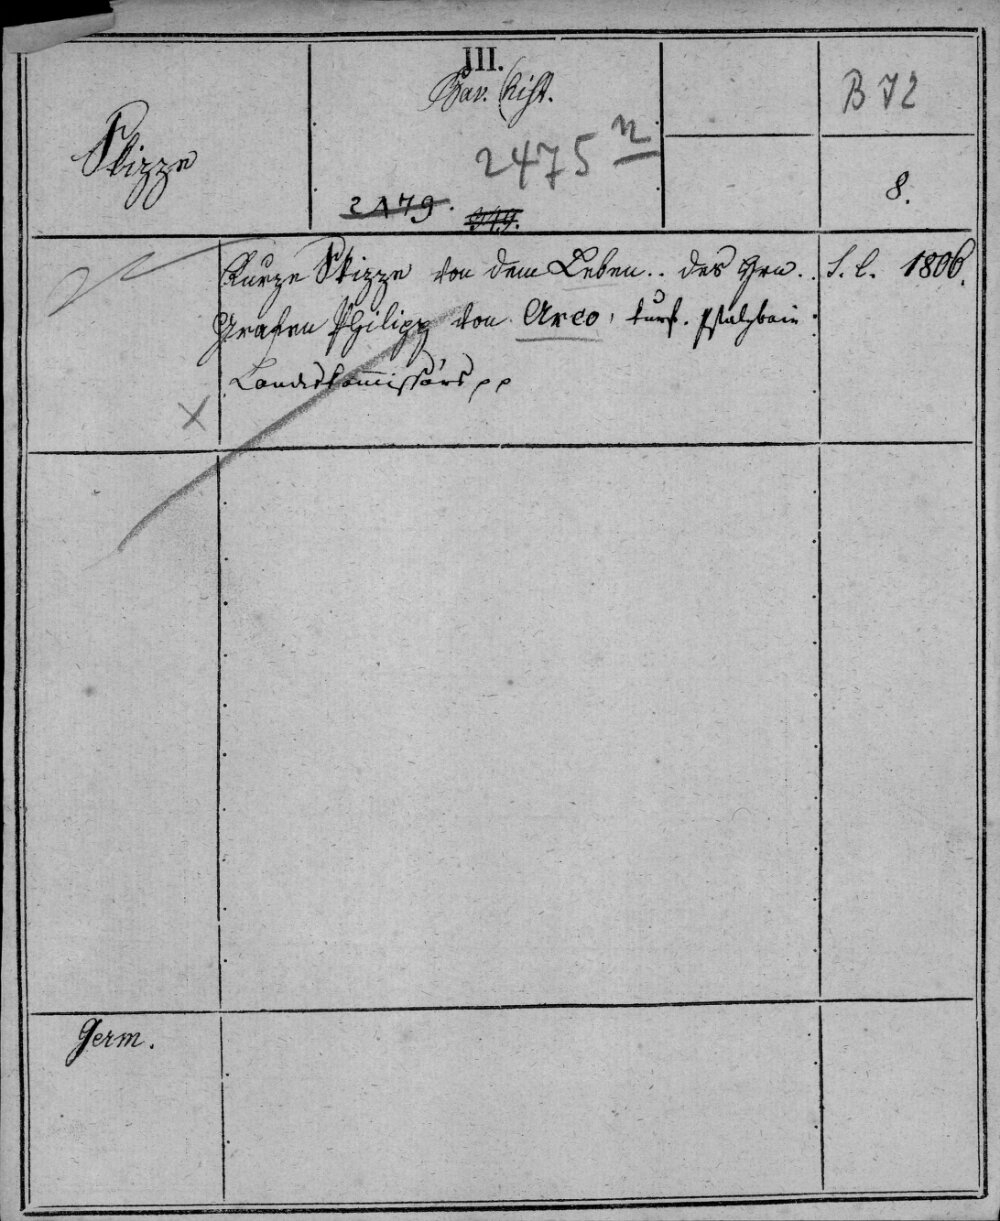 III.
Bav. hist.
B 72
Skizze
2475 n
2179.
8.
Kurze Skizze von dem Leben.. des Hrn.. S. l. 1806.
Grafen Philipp von Arco, kurf. pfalzbair.
Landeskommissärs pp
Germ.